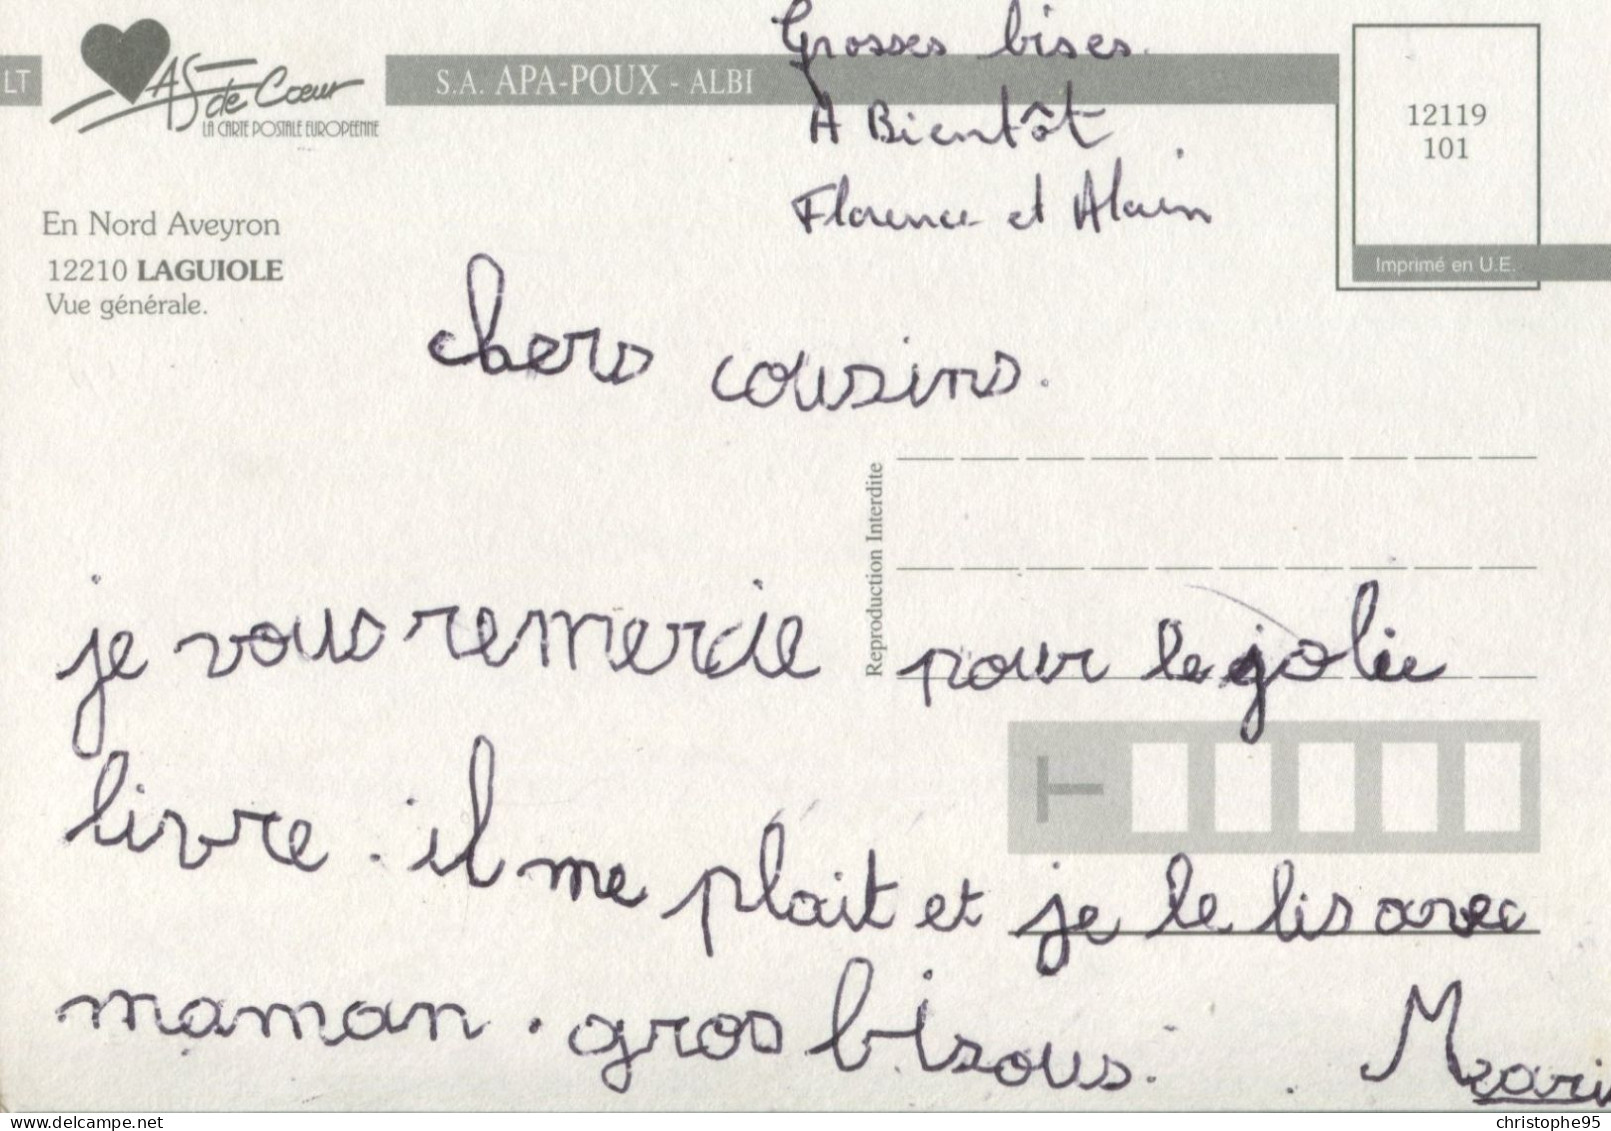 Grosses bises.
A Bientôt
Florence et Alain
LT
AS de Cœur
LA CARTE POSTALE EUROPEENNE
S.A. APA-POUX - ALBI
12119
101
Imprimé en U.E.
En Nord Aveyron
12210 LAGUIOLE
Vue générale.
chers cousins.
Reproduction Interdite
je vous remercie pour le jolie
livre. il me plait et je le lis avec
maman. gros bisous. Mari
christophe95